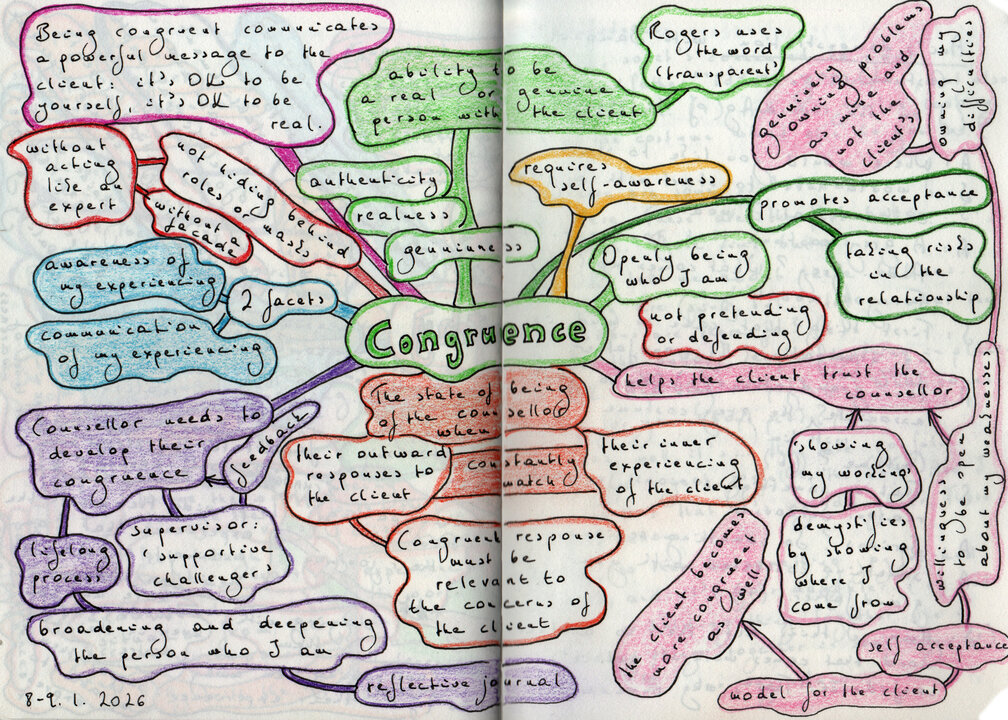 Being congruent communicates
a powerful message to the
client: it's OK to be
yourself, it's OK to be
real.
ability to be
a real or genuine
person with the client
Rogers uses
the word
(transparent)
genuinely
owning problems
as mine and
not the
client's
owning my
difficulties
without
acting
like an
expert
not hiding behind
roles or
masks
without a
facade
authenticity
realness
genuinness
requires
self-awareness
promotes acceptance
taking risks
in the
relationship
Openly being
who I am
not pretending
or defending
awareness of
my experiencing
2 facets
communication
of my experiencing
Congruence
helps the client trust the
counsellor
The state of being
of the counsellor
when
their outward
responses to
the client
constantly
match
their inner
experiencing
of the client
Counsellor needs to
develop their
congruence
feedback
supervisor:
(supportive
challenger)
lifelong
process
broadening and deepening
the person who I am
reflective journal
Congruent response
must be
relevant to
the concerns of
the client
showing
my workings
demystifies
by showing
where I
come from
willingness
to be open
about my weaknesses
the client becomes
more congruent
as well
self acceptance
model for the client
8-9. 1. 2026